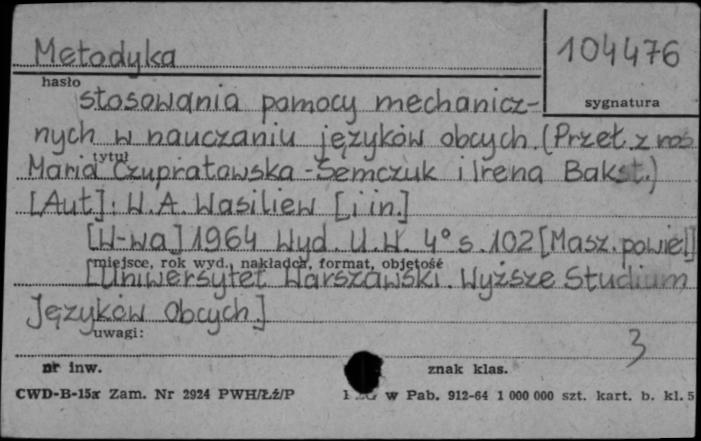 Metodyka
104476
hasło
sygnatura
stosowania pomocy mechanicz-
nych w nauczaniu języków obcych (Przeł. z ros.
tytuł
Maria Czupratowska-Semczuk i Irena Bakst.)
[Aut]: W. A. Wasiliew [i in.]
[W-wa] 1964 Wyd. U.W. 4° s. 102 [Masz. powiel]
miejsce, rok wyd., nakładca, format, objętość
[Uniwersytet Warszawski. Wyższe Studium
Języków Obcych]
uwagi:
3
nr inw.
znak klas.
CWD-B-15x Zam. Nr 2924 PWH/Łź/P
w Pab. 912-64 1 000 000 szt. kart. b. kl. 5